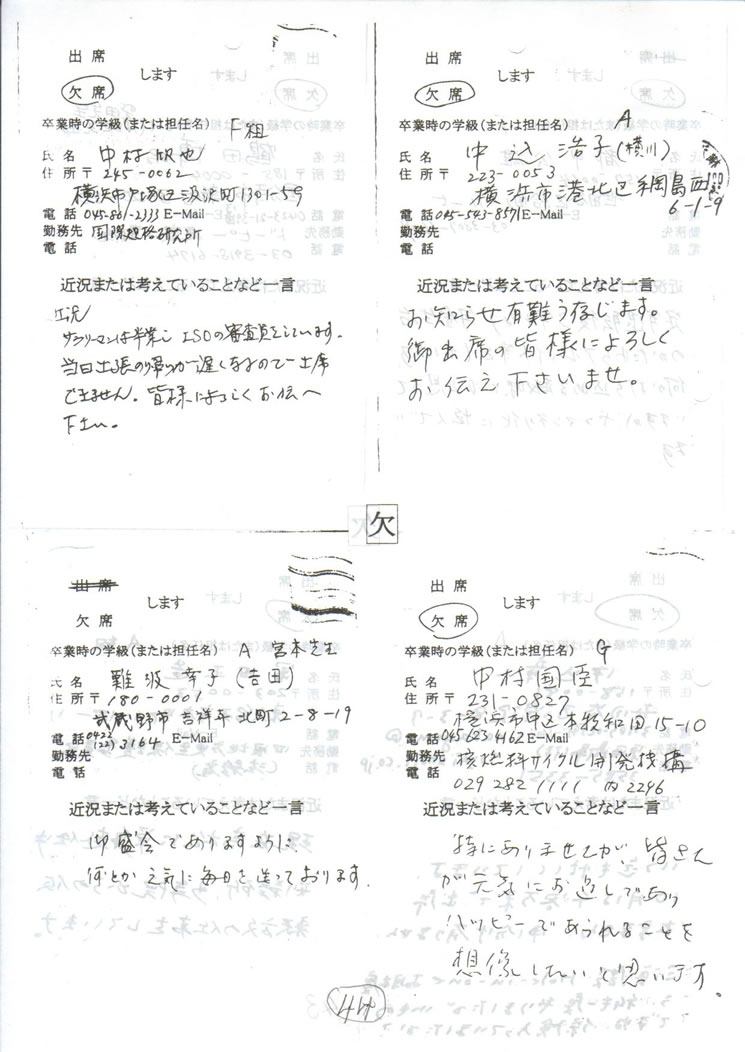 出席
欠席
します
卒業時の学級(または担任名) F組
氏名 中村 也
住所〒 245-0062
横浜市戸塚区汲沢町1301-59
電話 045-861-2333 E-Mail
勤務先 国際規格研究所
電話
近況または考えていることなど一言
近況
サラリーマンは卒業し ISOの審査員をしています。
当日出張の帰りが遅くなるので出席
できません。皆様によろしくお伝へ
下さい。
出席
欠席
します
卒業時の学級(または担任名) A
氏名 中込 浩子(横川)
住所〒 223-0053
横浜市港北区綱島西
6-1-9
電話 045-543-8571 E-Mail
勤務先
電話
近況または考えていることなど一言
お知らせ有難う存じます。
御出席の皆様によろしく
お伝え下さいませ。
欠
出席
欠席
します
卒業時の学級(または担任名) A 宮本先生
氏名 難波幸子(吉田)
住所〒 180-0001
武蔵野市吉祥寺北町2-8-19
電話 0422 (22) 3164 E-Mail
勤務先
電話
近況または考えていることなど一言
御盛会でありますように。
何とか元気に毎日を送っております。
出席
欠席
します
卒業時の学級(または担任名) G
氏名 中村国臣
住所〒 231-0827
横浜市中区本牧和田15-10
電話 045 623 4462 E-Mail
勤務先 核燃料サイクル開発機構
電話 029 282 1111 内2246
近況または考えていることなど一言
特にありませんが、皆さん
が元気にお過しであり
ハッピーであられることを
想像したいと思います。
44